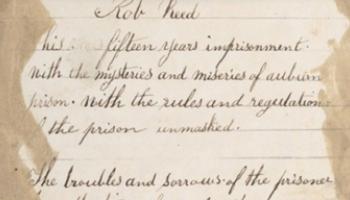 Rob Reed
his fifteen years imprisonment.
With the mysteries and miseries of auburn
prison. with the rules and regulation
of the prison unmasked.
The troubles and sorrows. of the prisoner